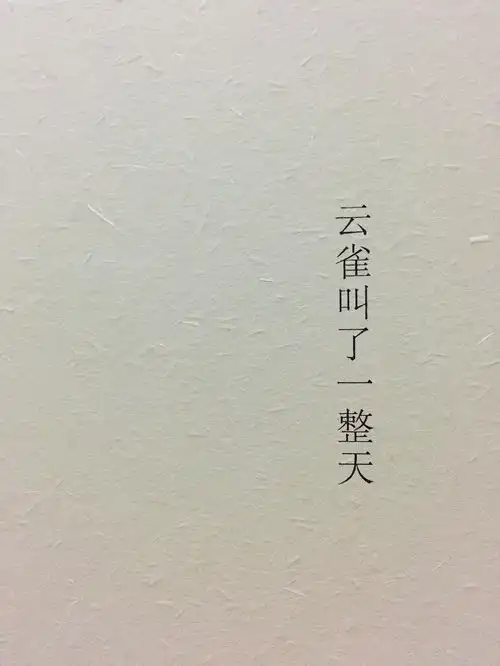 云雀叫了一整天